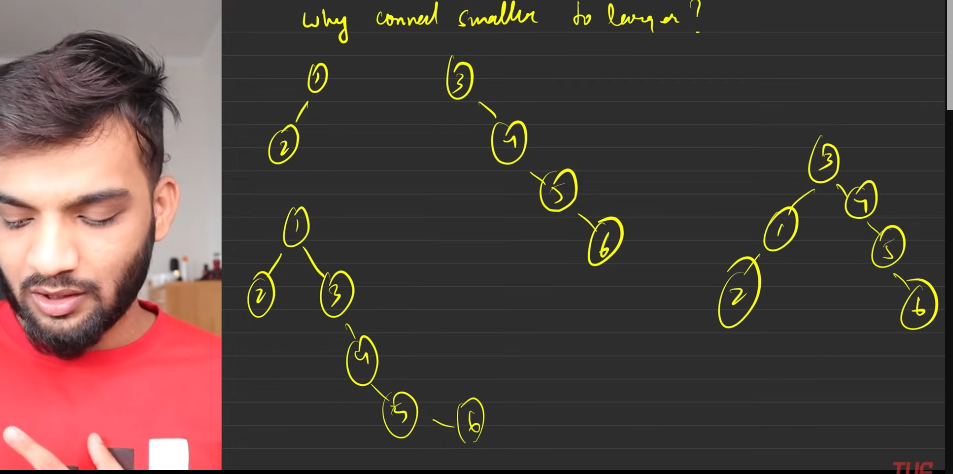 Why connect smaller to larger?
1
2
3
4
5
6
1
2
3
4
5
6
3
1
4
2
5
6